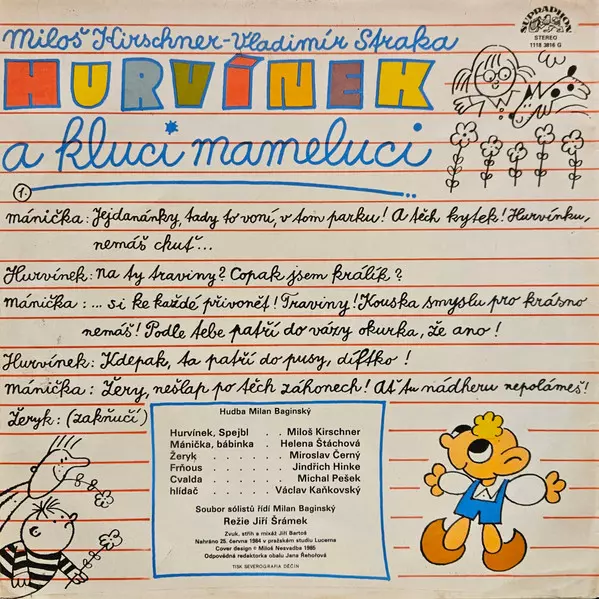 SUPRAPHON
STEREO
1118 3816 G
Miloš Kirschner-Vladimír Straka
HURVÍNEK
a kluci mameluci
1.
Mánička: Jejdanánky, tady to voní, v tom parku! A těch kytek! Hurvínku,
nemáš chuť...
Hurvínek: Na ty traviny? Copak jsem králík?
Mánička: ... si ke každé přivonět! Traviny! Kouska smyslu pro krásno
nemáš! Podle tebe patří do vázy okurka, že ano!
Hurvínek: Kdepak, ta patří do pusy, díftko!
Mánička: Žery, nešlap po těch záhonech! Ať tu nádheru nepolámeš!
Žeryk: (zakňučí)
Hudba Milan Baginský
Hurvínek, Spejbl . . Miloš Kirschner
Mánička, bábinka . Helena Štáchová
Žeryk . . . . . Miroslav Černý
Frňous . . . . . Jindřich Hinke
Cvalda . . . . . Michal Pešek
hlídač . . . . . Václav Kaňkovský
Soubor sólistů řídí Milan Baginský
Režie Jiří Šrámek
Zvuk, střih a mixáž Jiří Bartoš
Nahráno 25. června 1984 v pražském studiu Lucerna
Cover design © Miloš Nesvadba 1985
Odpovědná redaktorka obalu Jana Řehořová
TISK SEVEROGRAFIA DĚČÍN